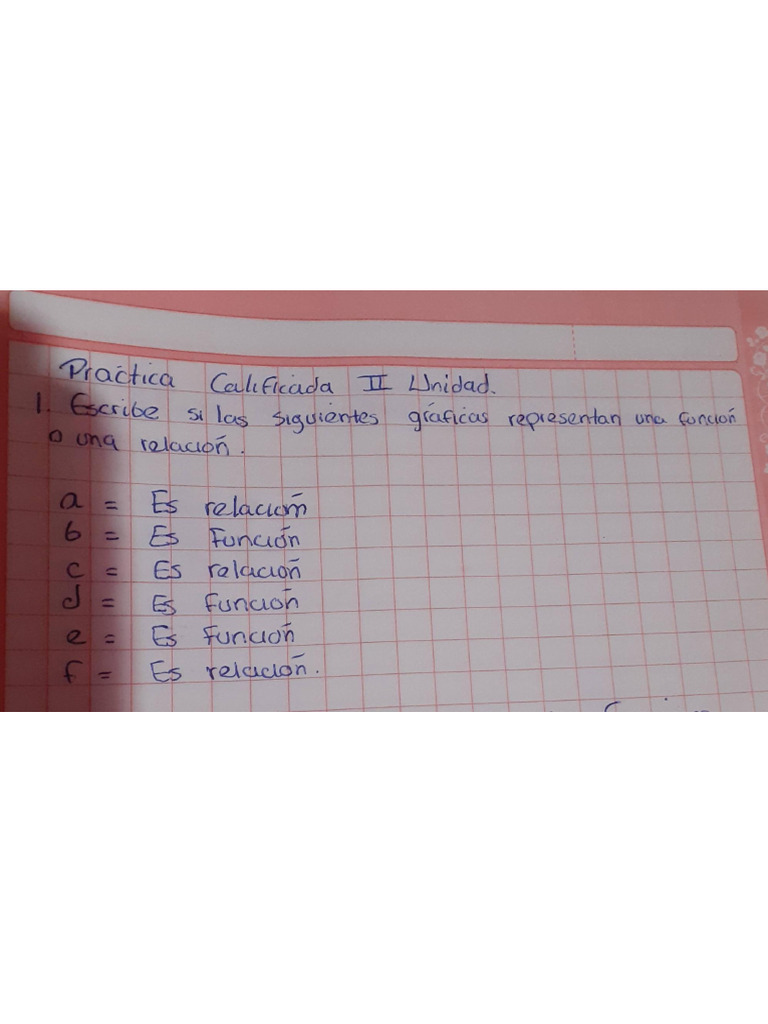 Práctica Calificada II Unidad.
1. Escribe si las siguientes gráficas representan una función
o una relación.
a = Es relación
b = Es Función
c = Es relación
d = Es función
e = Es función
f = Es relación.